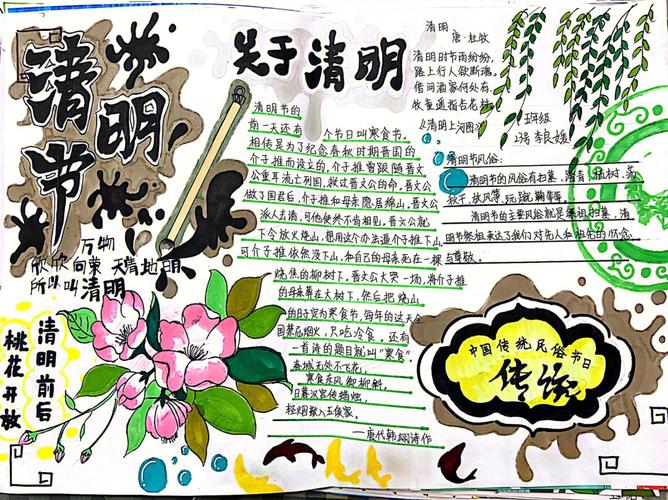 清明节
万物
欣欣向荣 天清地明
所以叫清明
清明前后
桃花开放
关于清明
清明节的
前一天还有一个节日叫寒食节。
相传是为了纪念春秋时期晋国的
介子推而设立的,介子推曾跟随晋文
公重耳流亡列国,救过晋文公的命。晋文公
做了国君后,介子推和母亲隐居绵山,晋文公
派人去请,可他使终不肯相见,晋文公就
下令放火烧山,想用这个办法逼介子推下山,
可介子推依然没下山,和自己的母亲死在一棵
烧焦的柳树下。晋文公大哭一场,将介子推
的母亲葬在大树下,然后把烧山
的日子定为寒食节,每年的这天全
国禁忌烟火,只吃冷食。还有
一首诗的题目就叫“寒食”。
春城无处不飞花,
寒食东风御柳斜。
日暮汉宫传蜡烛,
轻烟散入五侯家。
—唐代韩翃诗作
清明
唐·杜牧
清明时节雨纷纷,
路上行人欲断魂。
借问酒家何处有,
牧童遥指杏花村。
《清明上河图》
清明节风俗:
清明节的风俗有扫墓、踏青、植树、荡
秋千、放风筝、玩蹴鞠等等
清明节的主要风俗就是祭祖扫墓,清
明节祭祖表达了我们对先人和祖先的怀念
与尊敬。
中国传统民俗节日
传说